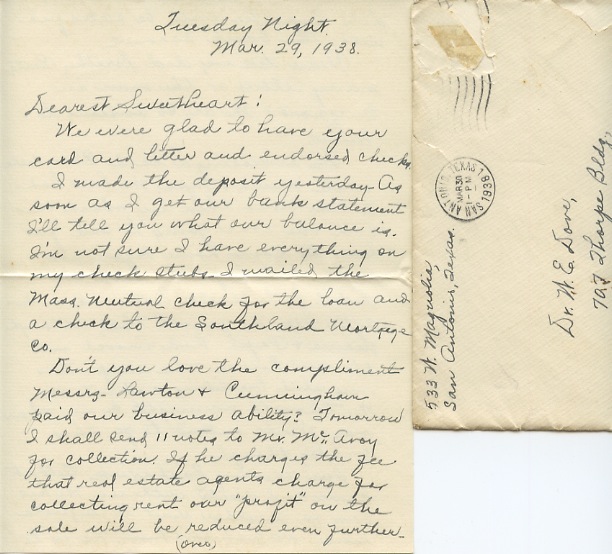 Tuesday Night.
Mar. 29, 1938.
Dearest Sweetheart:
We were glad to have your
card and letter and endorsed checks.
I made the deposit yesterday. As
soon as I get our bank statement
I'll tell you what our balance is.
I'm not sure I have everything on
my check stubs. I mailed the
Mass. Mutual check for the loan and
a check to the Southland Mortgage
Co.
Don't you love the compliment
Messrs. Lawton & Cunningham
paid our business ability? Tomorrow
I shall send 11 notes to Mr. McAvoy
for collection. If he charges the fee
that real estate agents charge for
collecting rent our "profit" on the
sale will be reduced even further.
(over)
SAN ANTONIO, TEXAS 1
MAR 30
1 - PM
1938
533 W. Magnolia
San Antonio, Texas.
Dr. W. E. Dove,
703 Thorpe Bldg,